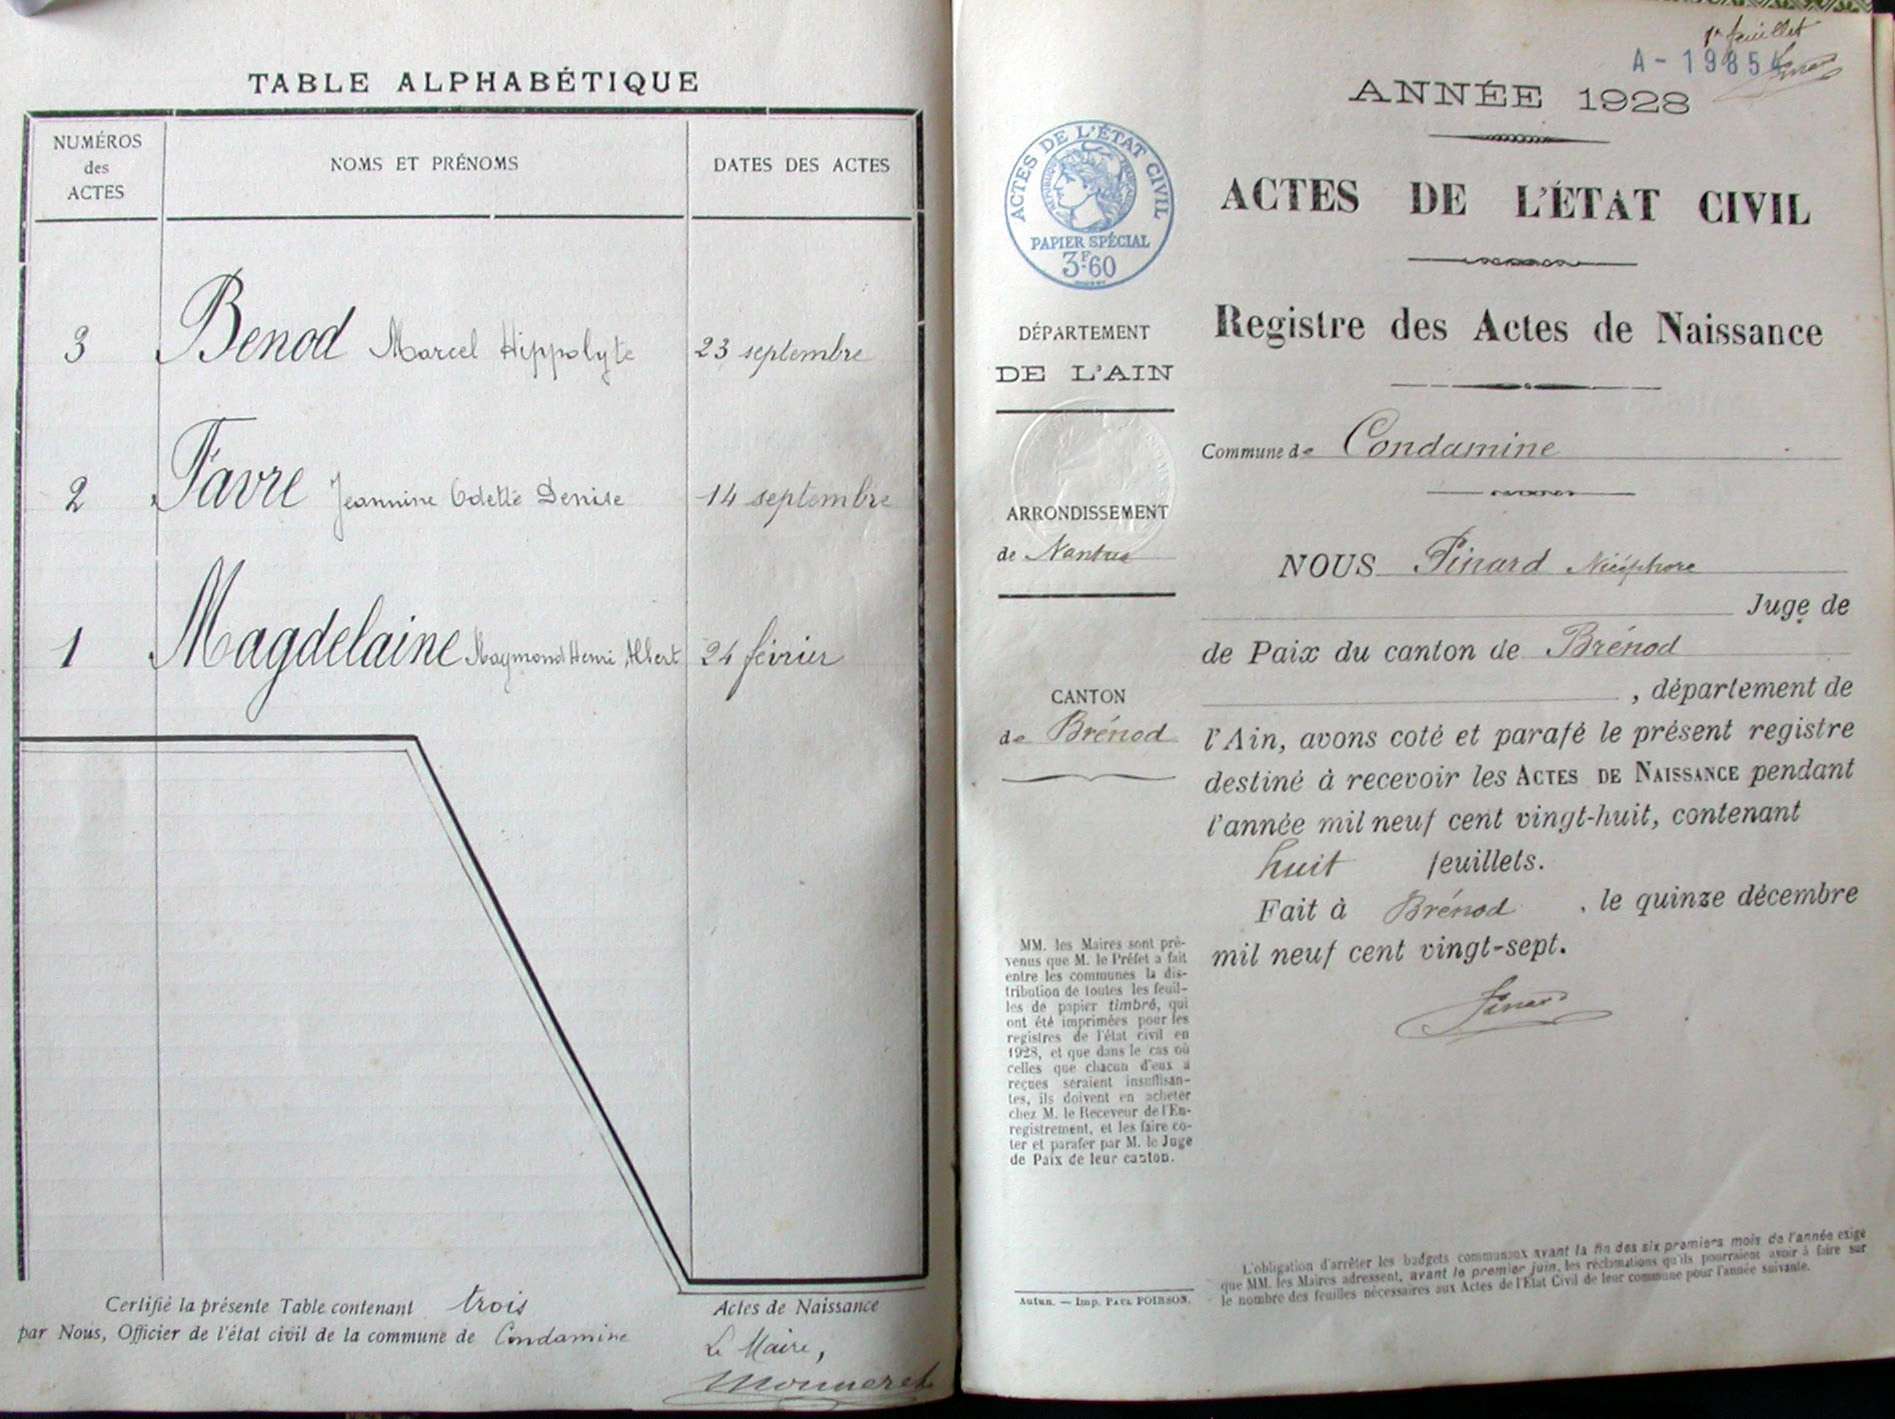 TABLE ALPHABÉTIQUE
NUMÉROS
des
ACTES
NOMS ET PRÉNOMS
DATES DES ACTES
3 Benod Marcel Hippolyte 23 septembre
2 Favre Jeannine Odette Denise 14 septembre
1 Magdelaine Raymond Henri Albert 24 février
Certifié la présente Table contenant trois Actes de Naissance
par Nous, Officier de l'état civil de la commune de Condamine
Le Maire,
Monneret
1er feuillet
A-19854
Pinard
ANNÉE 1928
ACTES DE L'ÉTAT CIVIL
Registre des Actes de Naissance
ACTES DE L'ÉTAT CIVIL
RÉPUBLIQUE FRANÇAISE
PAPIER SPÉCIAL
3F60
DÉPARTEMENT
DE L'AIN
ARRONDISSEMENT
de Nantua
CANTON
de Brénod
MM. les Maires sont pré-
venus que M. le Préfet a fait
entre les communes la dis-
tribution de toutes les feuil-
les de papier timbré, qui
ont été imprimées pour les
registres de l'état civil en
1928, et que dans le cas où
celles que chacun d'eux a
reçues seraient insuffisan-
tes, ils doivent en acheter
chez M. le Receveur de l'En-
registrement, et les faire co-
ter et parafer par M. le Juge
de Paix de leur canton.
Autun. — Imp. PAUL POIRSON.
Commune de Condamine
NOUS Pinard Nicéphore
Juge de
de Paix du canton de Brénod
, département de
l'Ain, avons coté et parafé le présent registre
destiné à recevoir les ACTES DE NAISSANCE pendant
l'année mil neuf cent vingt-huit, contenant
huit feuillets.
Fait à Brénod, le quinze décembre
mil neuf cent vingt-sept.
Pinard
L'obligation d'arrêter les budgets communaux avant la fin des six premiers mois de l'année exige
que MM. les Maires adressent, avant le premier juin, les réclamations qu'ils pourraient avoir à faire sur
le nombre des feuilles nécessaires aux Actes de l'État Civil de leur commune pour l'année suivante.